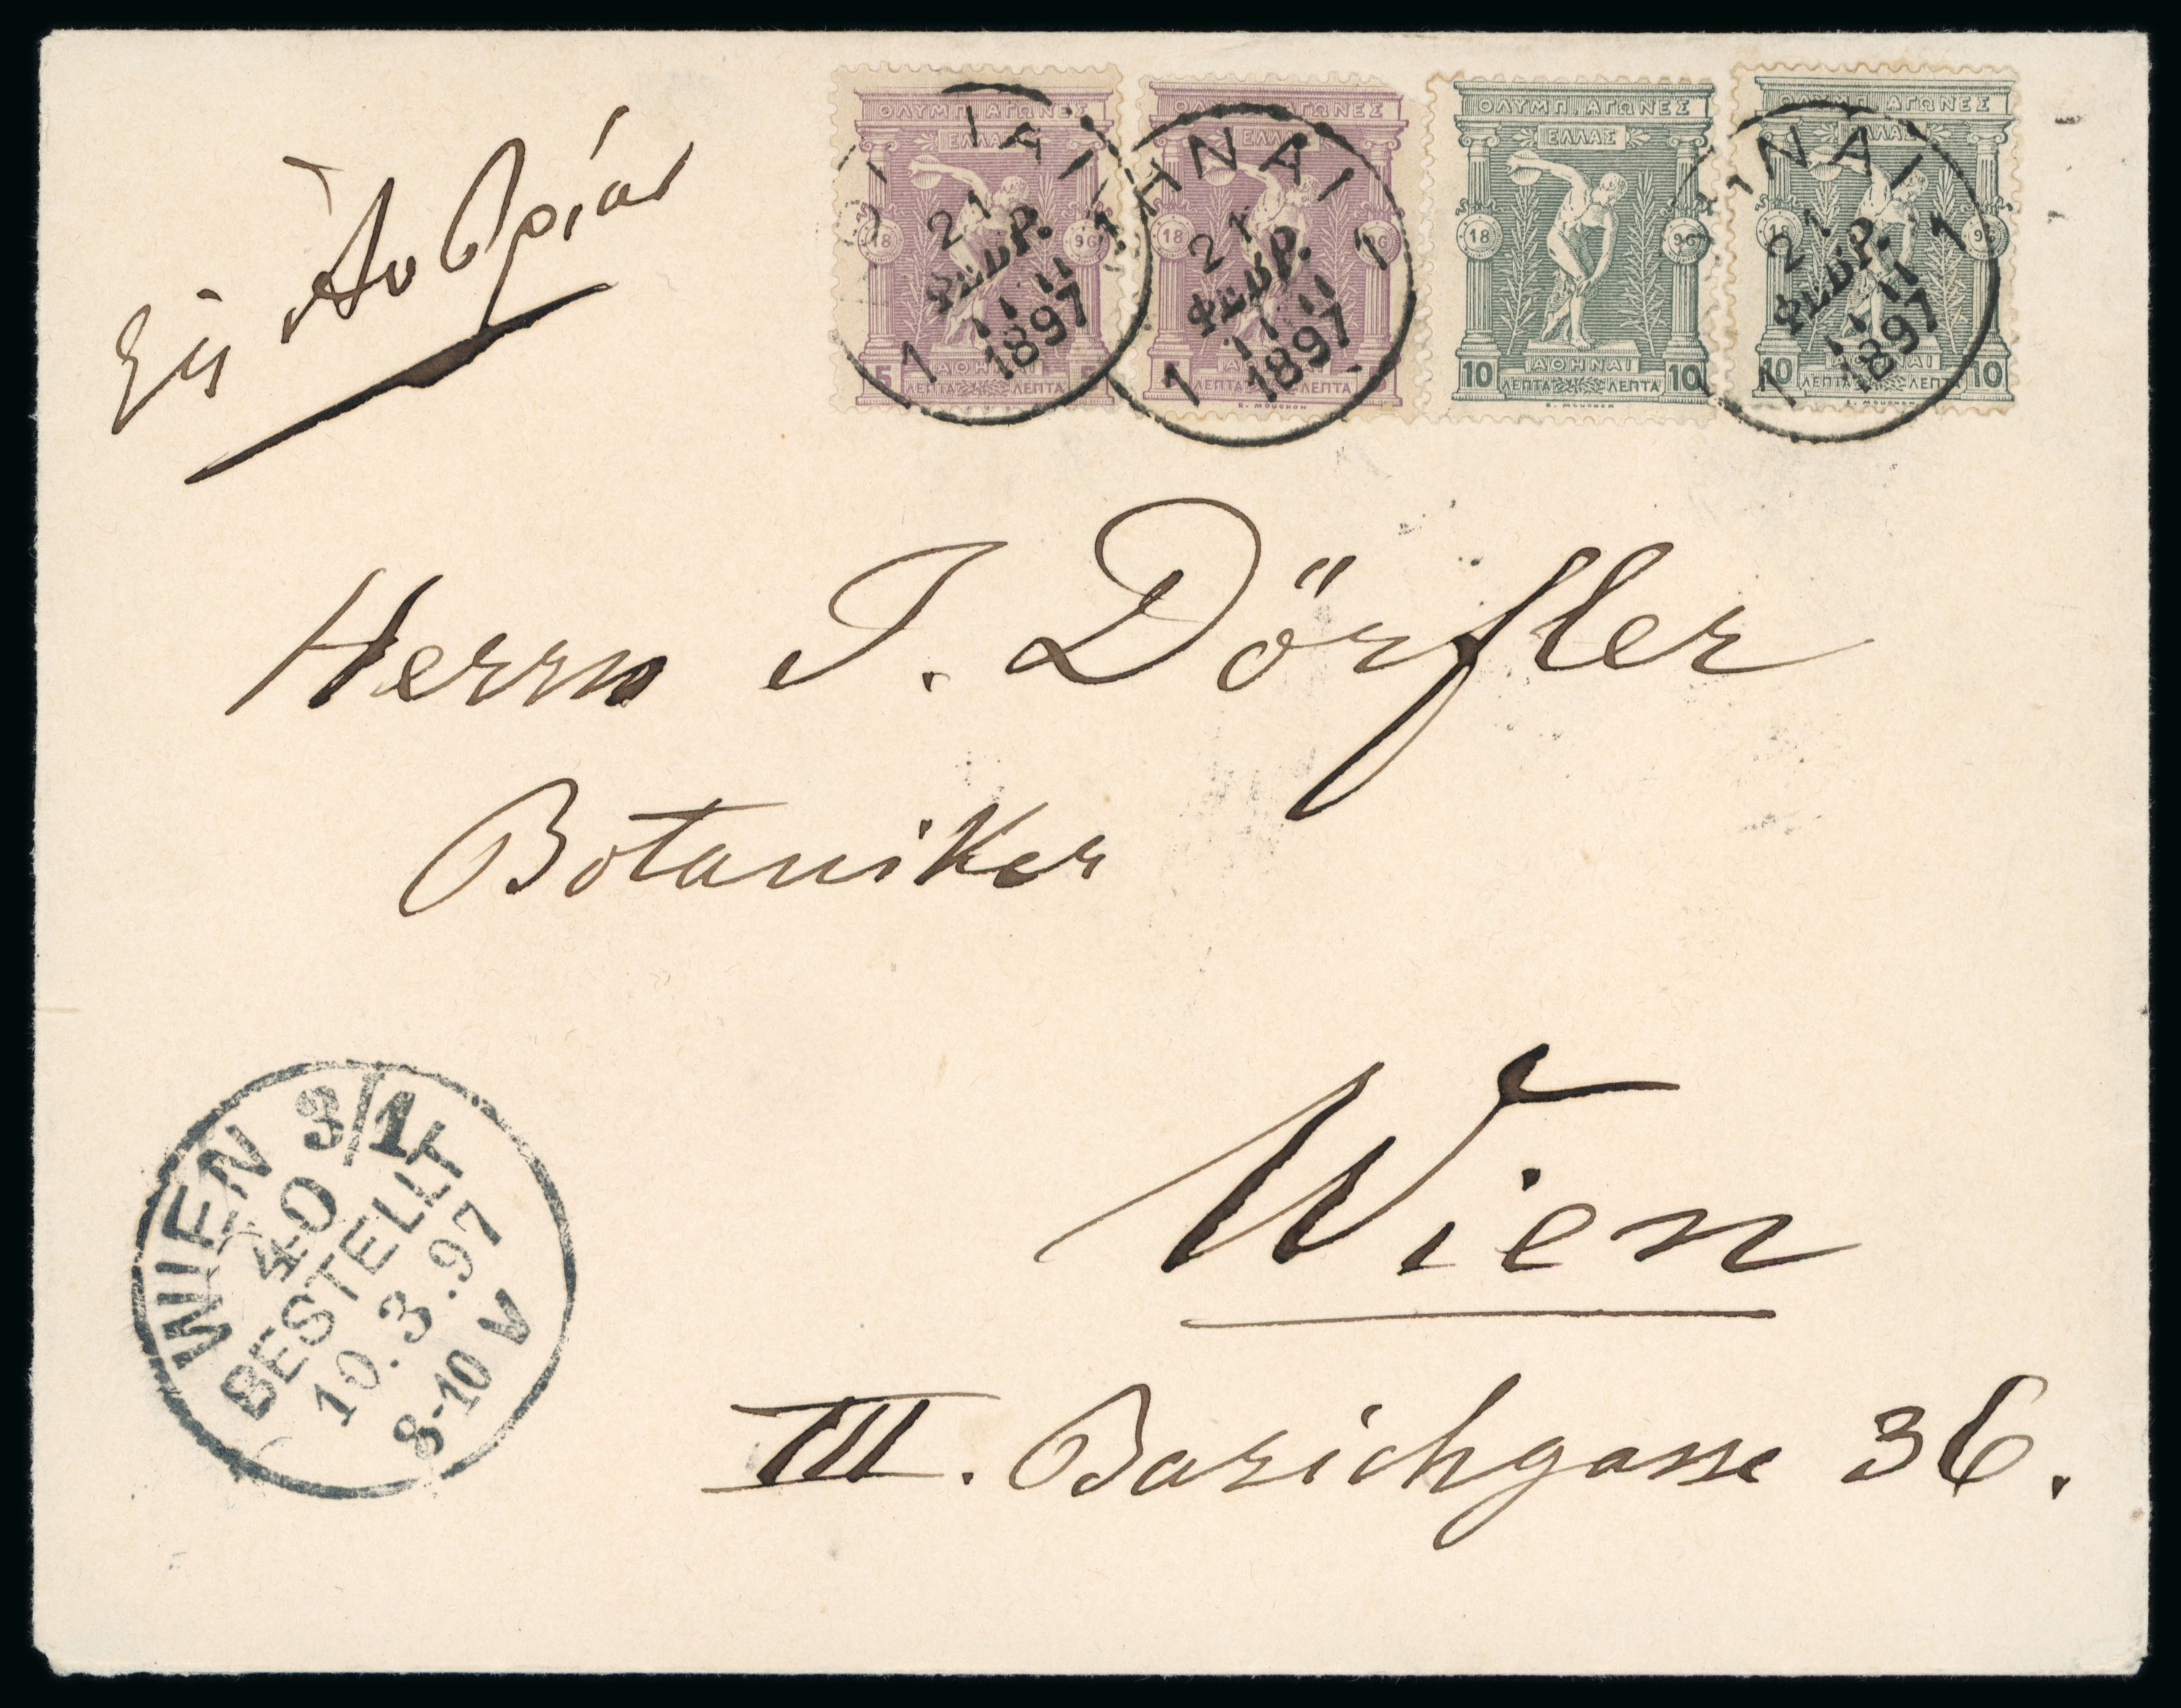 Εἰς Αὐστρίαν
ΟΛΥΜΠ. ΑΓΩΝΕΣ
ΕΛΛΑΣ
18 96
5 ΑΘΗΝΑΙ 5
ΛΕΠΤΑ ΛΕΠΤΑ
21
ΦΕΒΡ.
11 11
1 1897 1
ΟΛΥΜΠ. ΑΓΩΝΕΣ
ΕΛΛΑΣ
18 96
ΛΕΠΤΑ
E. MOUCHON
ΑΘΗΝΑΙ 1
21
ΦΕΒΡ.
11 11
1 1897
ΟΛΥΜΠ. ΑΓΩΝΕΣ
ΕΛΛΑΣ
18 96
10 ΑΘΗΝΑΙ 10
ΛΕΠΤΑ ΛΕΠΤΑ
E. MOUCHON
ΟΛΥΜΠ. ΑΓΩΝΕΣ
ΕΛΛΑΣ
18 96
10 ΑΘΗΝΑΙ 10
ΛΕΠΤΑ ΛΕΠΤΑ
E. MOUCHON
ΑΘΗΝΑΙ 1
21
ΦΕΒΡ.
11 11
1 1897
Herrn I. Dörfler
Botaniker
Wien
III. Barichgasse 36.
WIEN 3/1
40
BESTELLT
10.3.97
8-10 V